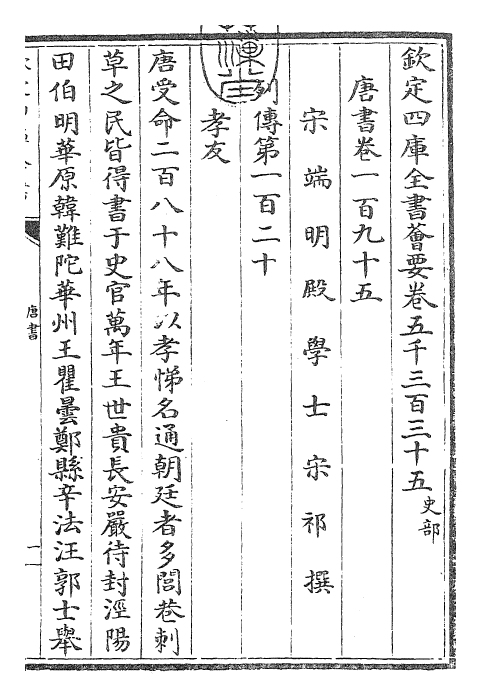 欽定四庫全書薈要卷五千三百三十五 史部
唐書卷一百九十五
宋端明殿學士宋祁撰
列傳第一百二十
孝友
唐受命二百八十八年以孝悌名通朝廷者多閭巷刺
草之民皆得書于史官萬年王世貴長安嚴待封涇陽
田伯明華原韓難陀華州王瞿曇鄭縣辛法汪郭士舉
唐書